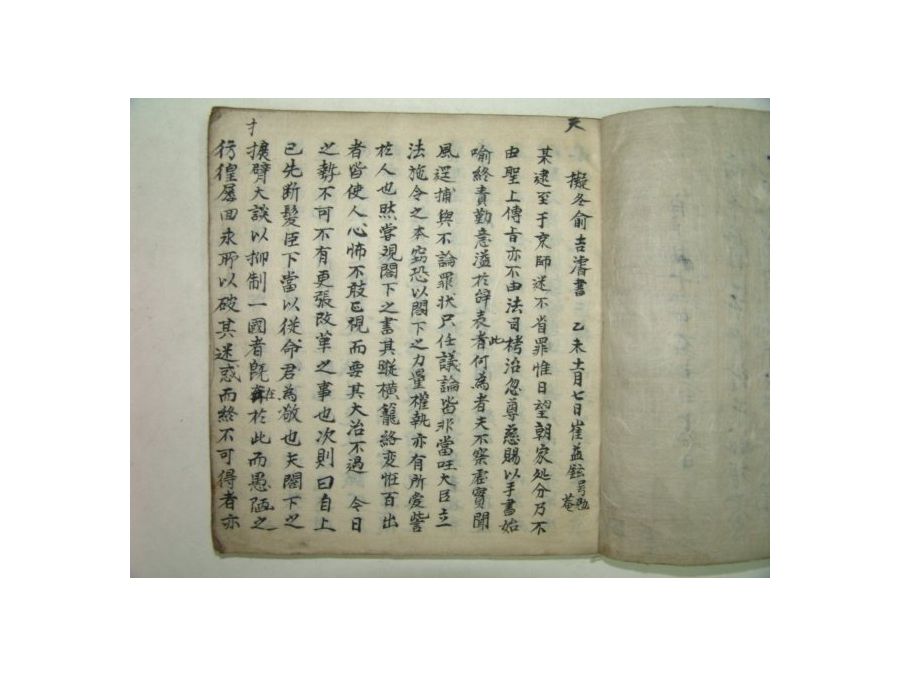 天
擬冬俞吉濬書 乙未十一月七日 崔益鉉 号勉菴
某逮至于京師迷不省罪惟日望朝家処分乃不
由聖上傳旨亦不由法司栲治忽尊慈賜以手書始
喻終責勤意溢於辞表者此何為者夫不察虛實聞
風逞捕與不論罪状只任議論皆非當今大臣立
法施令之本窃恐以閤下之力量權執亦有所受
於人也然嘗現閤下之書其縱橫籠絡変恠百出
者皆使人心怖不敢正視而要其大治不過 令日
之勢不可不有更張改革之事也次則曰自上
已先断髮臣下當以從命君為敬也夫閤下之
攘臂大談以抑制一國者旣在於此而愚陋之
彷徨屡回求所以破其迷惑而終不可得者亦
才